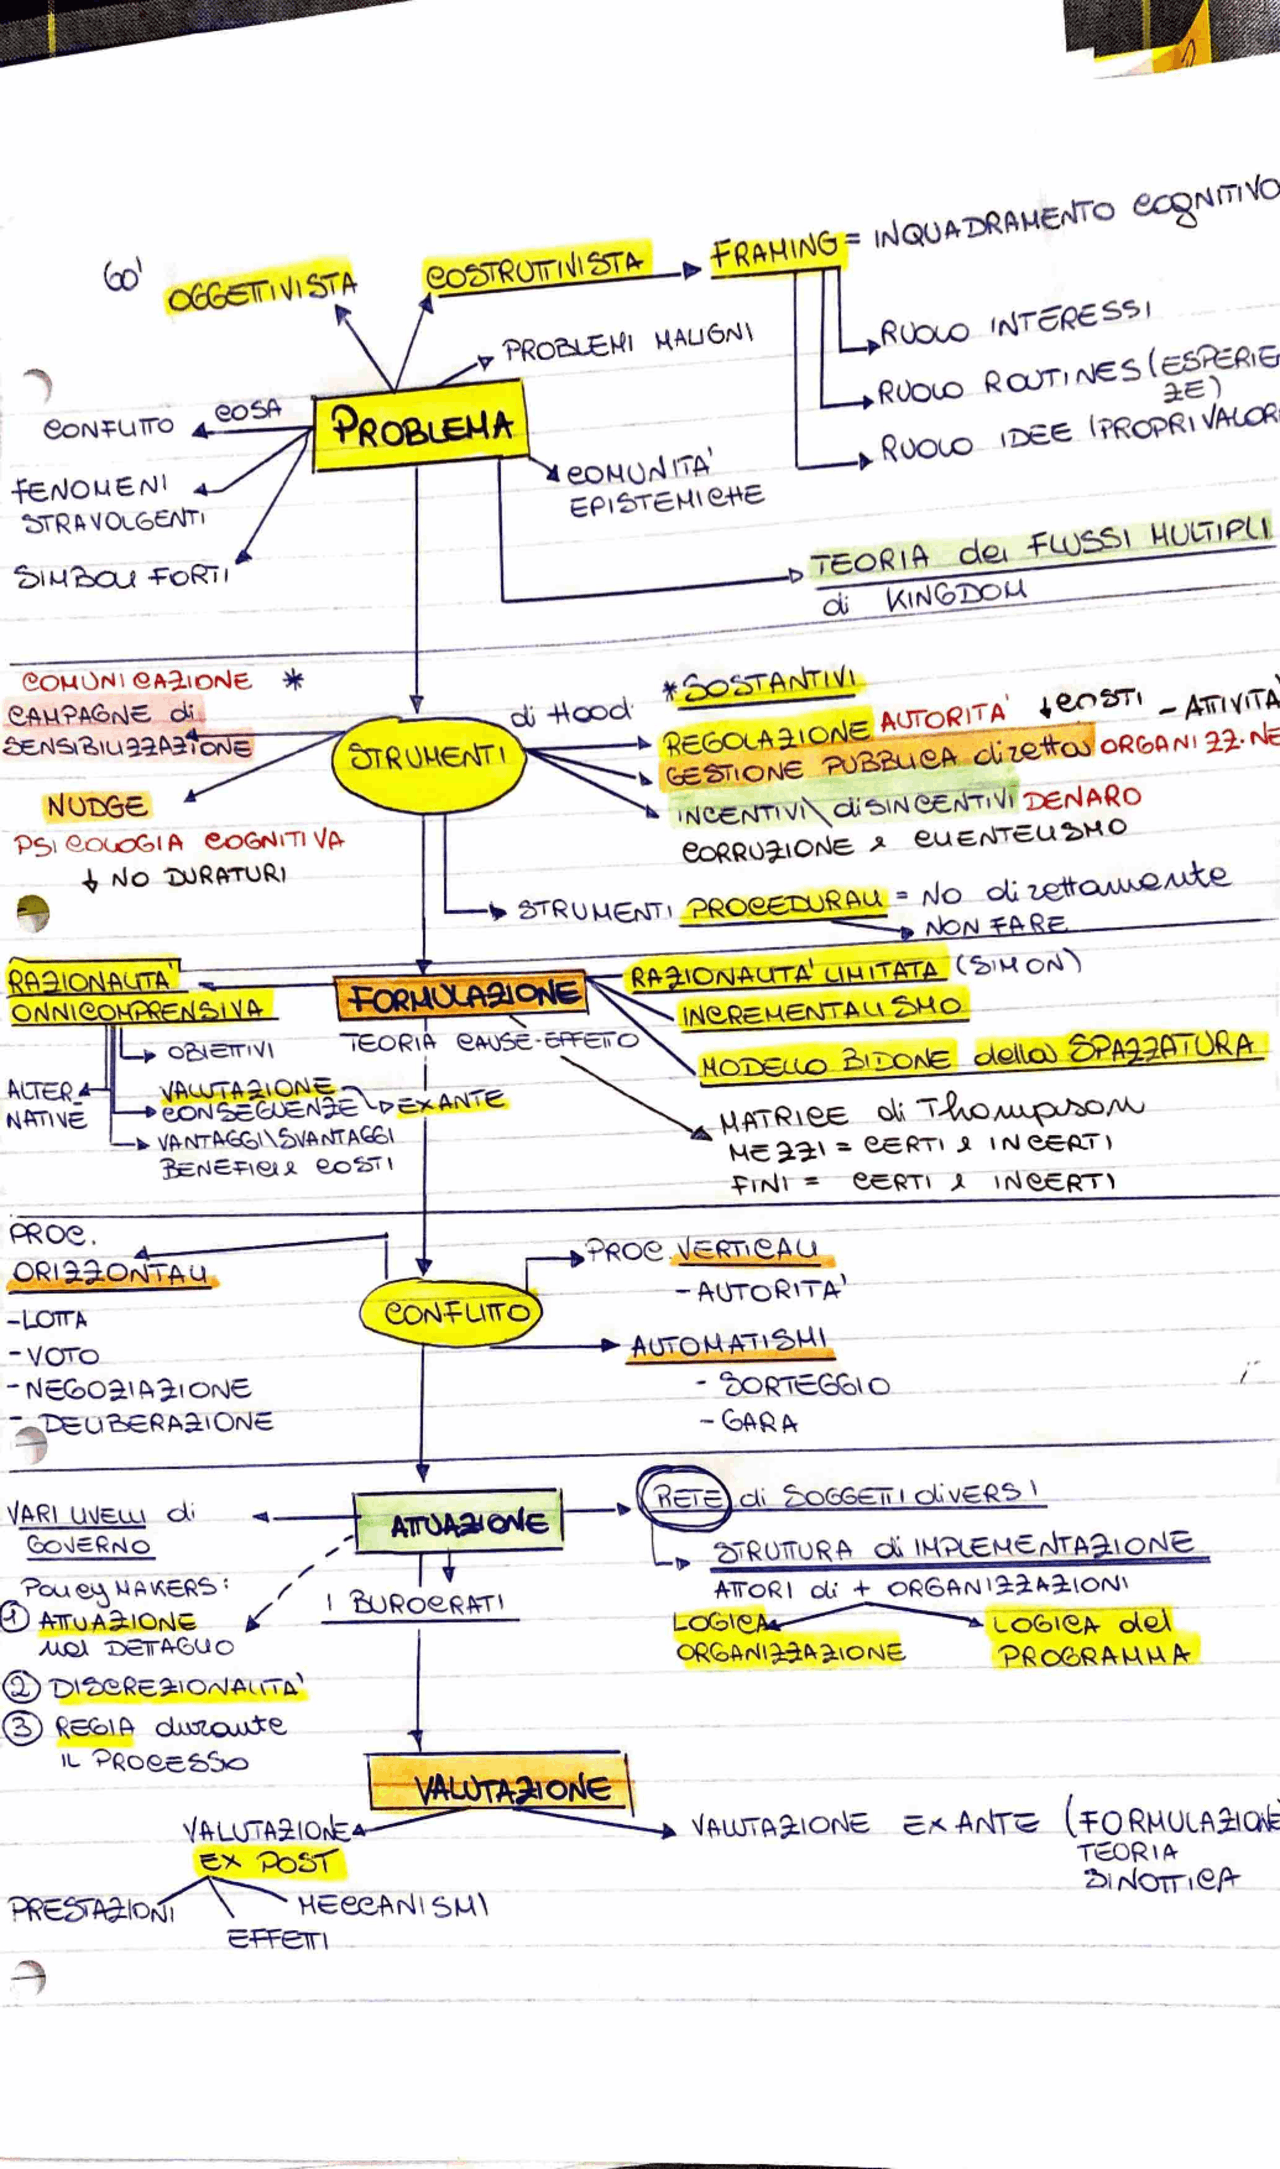 60'
OGGETTIVISTA
COSTRUTTIVISTA
FRAMING = INQUADRAMENTO COGNITIVO
RUOLO INTERESSI
RUOLO ROUTINES (ESPERIEN
ZE)
RUOLO IDEE (PROPRI VALORI
PROBLEMI MALIGNI
PROBLEMA
COSA
CONFLITTO
FENOMENI
STRAVOLGENTI
SIMBOLI FORTI
COMUNITA'
EPISTEMICHE
TEORIA dei FLUSSI MULTIPLI
di KINGDOM
COMUNICAZIONE *
CAMPAGNE di
SENSIBILIZZAZIONE
NUDGE
PSICOLOGIA COGNITIVA
↓ NO DURATURI
STRUMENTI
di Hood
* SOSTANTIVI
REGOLAZIONE AUTORITA' ↓ COSTI - ATTIVITA'
GESTIONE PUBBLICA diretta ORGANIZZ.NE
INCENTIVI\disINCENTIVI DENARO
CORRUZIONE e CLIENTELISMO
STRUMENTI PROCEDURALI = NO direttamente
NON FARE
RAZIONALITA'
ONNICOMPRENSIVA
FORMULAZIONE
TEORIA CAUSE-EFFETTO
RAZIONALITA' LIMITATA (SIMON)
INCREMENTALISMO
MODELLO BIDONE della SPAZZATURA
OBIETTIVI
ALTER
NATIVE
VALUTAZIONE
CONSEGUENZE EX ANTE
VANTAGGI\SVANTAGGI
BENEFICI e COSTI
MATRICE di Thompson
MEZZI = CERTI e INCERTI
FINI = CERTI e INCERTI
PROC.
ORIZZONTALI
-LOTTA
-VOTO
-NEGOZIAZIONE
- DELIBERAZIONE
CONFLITTO
PROC. VERTICALI
- AUTORITA'
AUTOMATISMI
- SORTEGGIO
- GARA
VARI LIVELLI di
GOVERNO
ATTUAZIONE
I BUROCRATI
RETE di SOGGETTI diVERSI
STRUTTURA di IMPLEMENTAZIONE
ATTORI di + ORGANIZZAZIONI
LOGICA
ORGANIZZAZIONE
LOGICA del
PROGRAMMA
Policy MAKERS:
① ATTUAZIONE
nel DETTAGLIO
② DISCREZIONALITA'
③ REGIA durante
IL PROCESSO
VALUTAZIONE
VALUTAZIONE
EX POST
PRESTAZIONI
EFFETTI
MECCANISMI
VALUTAZIONE EX ANTE (FORMULAZIONE
TEORIA
SINOTTICA